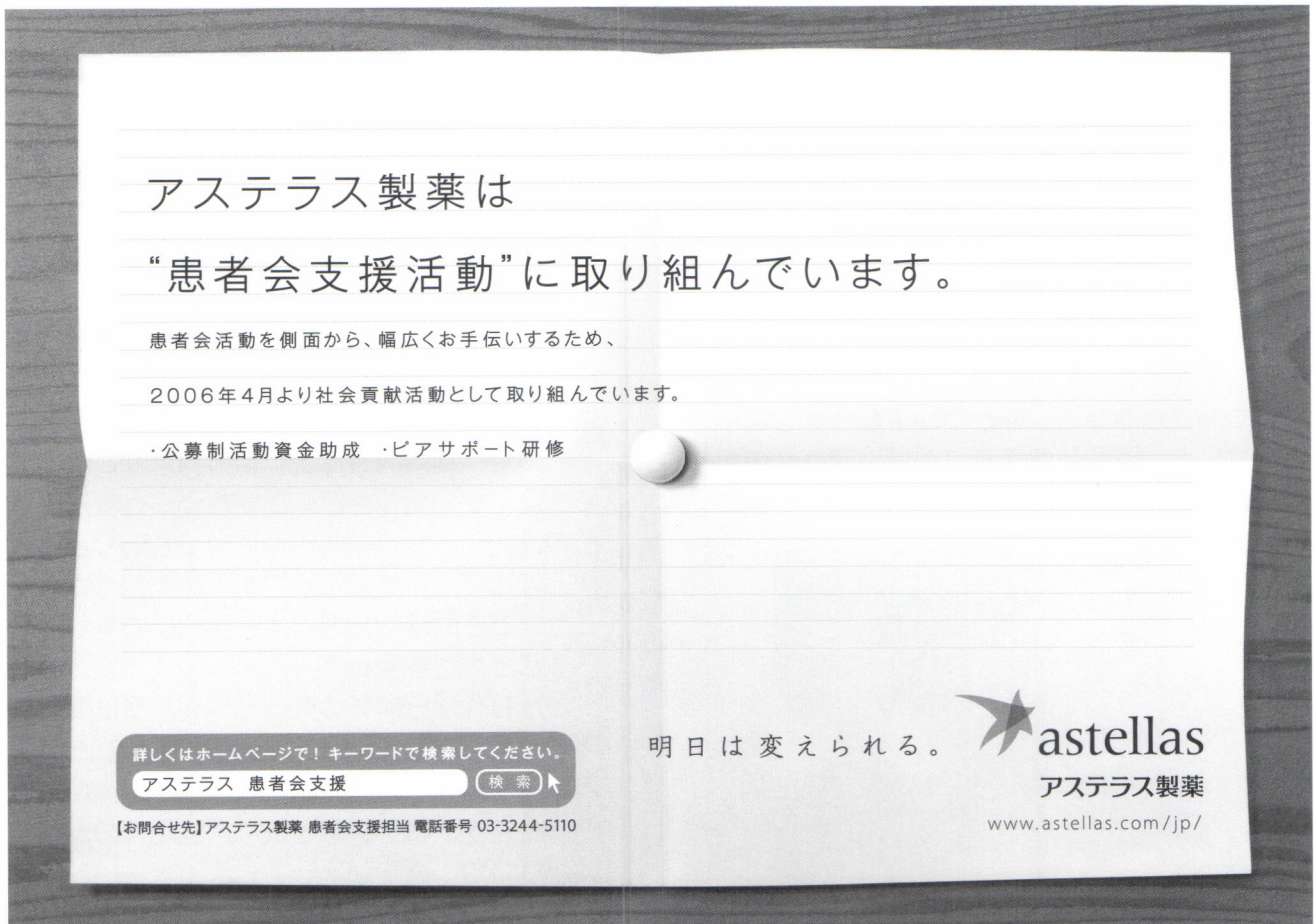 アステラス製薬は
“患者会支援活動”に取り組んでいます。
患者会活動を側面から、幅広くお手伝いするため、
2006年4月より社会貢献活動として取り組んでいます。
・公募制活動資金助成 ・ピアサポート研修
詳しくはホームページで！キーワードで検索してください。
アステラス 患者会支援 検索
【お問合せ先】アステラス製薬 患者会支援担当 電話番号 03-3244-5110
明日は変えられる。
astellas
アステラス製薬
www.astellas.com/jp/